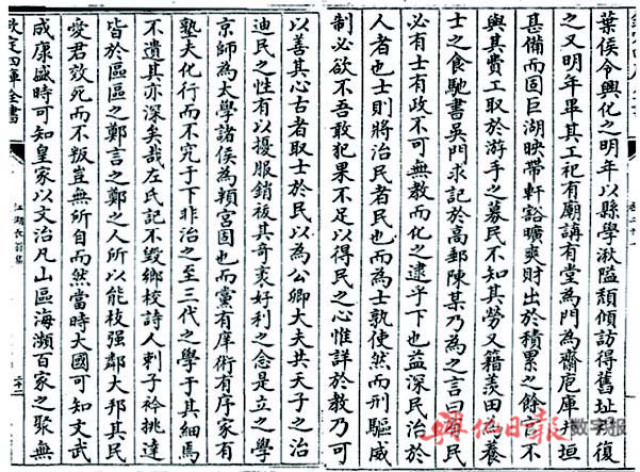 葉侯令興化之明年以縣學湫隘頹傾訪得舊址復
之又明年畢其工祀有廟講有堂為門為齋庖庫井垣
甚備而固巨湖映帶軒豁曠爽財出於積累之餘官不
與其費工取於游手之募民不知其勞又籍羨田為養
士之食馳書吳門求記於高郵陳某乃為之言曰有民
必有士有政不可無教而化之逮乎下也益深民治於
人者也士則將治民者民也而為士孰使然而刑驅威
制必欲不吾敢犯果不足以得民之心惟詳於教乃可
以善其心古者取士於民以為公卿大夫共天子之治
迪民之性有以擾服銷祓其奇衺好利之念是立之學
京師為大學諸侯為頖宮國也而黨有庠術有序家有
塾夫化行而不究于下非治之至三代之學于其細焉
不遺其亦深矣哉左氏記不毀鄉校詩人刺子衿挑達
皆於區區之鄭言之鄭之人所以能枝强鄰大邦其民
愛君效死而不叛豈無所自而然當時大國可知文武
成康盛時可知皇家以文治凡山區海瀕百家之聚無
欽定四庫全書
江湖長翁集
二十二
興化日报 数字报